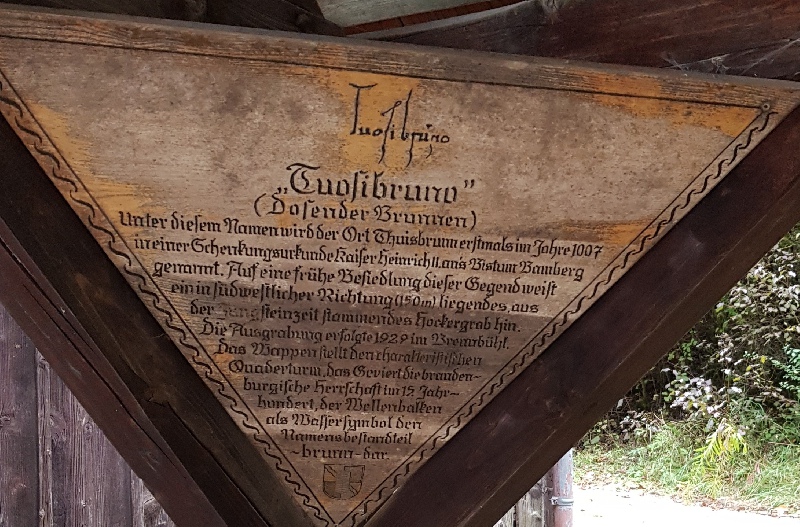 Tuosibruno
„Tuosibruno”
(Dosender Brunnen)
Unter diesem Namen wird der Ort Thuisbrunn erstmals im Jahre 1007
in einer Schenkungsurkunde Kaiser Heinrich II. an's Bistum Bamberg
genannt. Auf eine frühe Besiedlung dieser Gegend weist
ein in südwestlicher Richtung (150m) liegendes, aus
der Jungsteinzeit stammendes Hockergrab hin.
Die Ausgrabung erfolgte 1929 im Brennbühl.
Das Wappen stellt den charakteristischen
Quaderturm, das Geviert die branden-
burgische Herrschaft im 15 Jahr-
hundert, der Wellenbalken
als Wassersymbol den
Namensbestandteil
-brunn- dar.